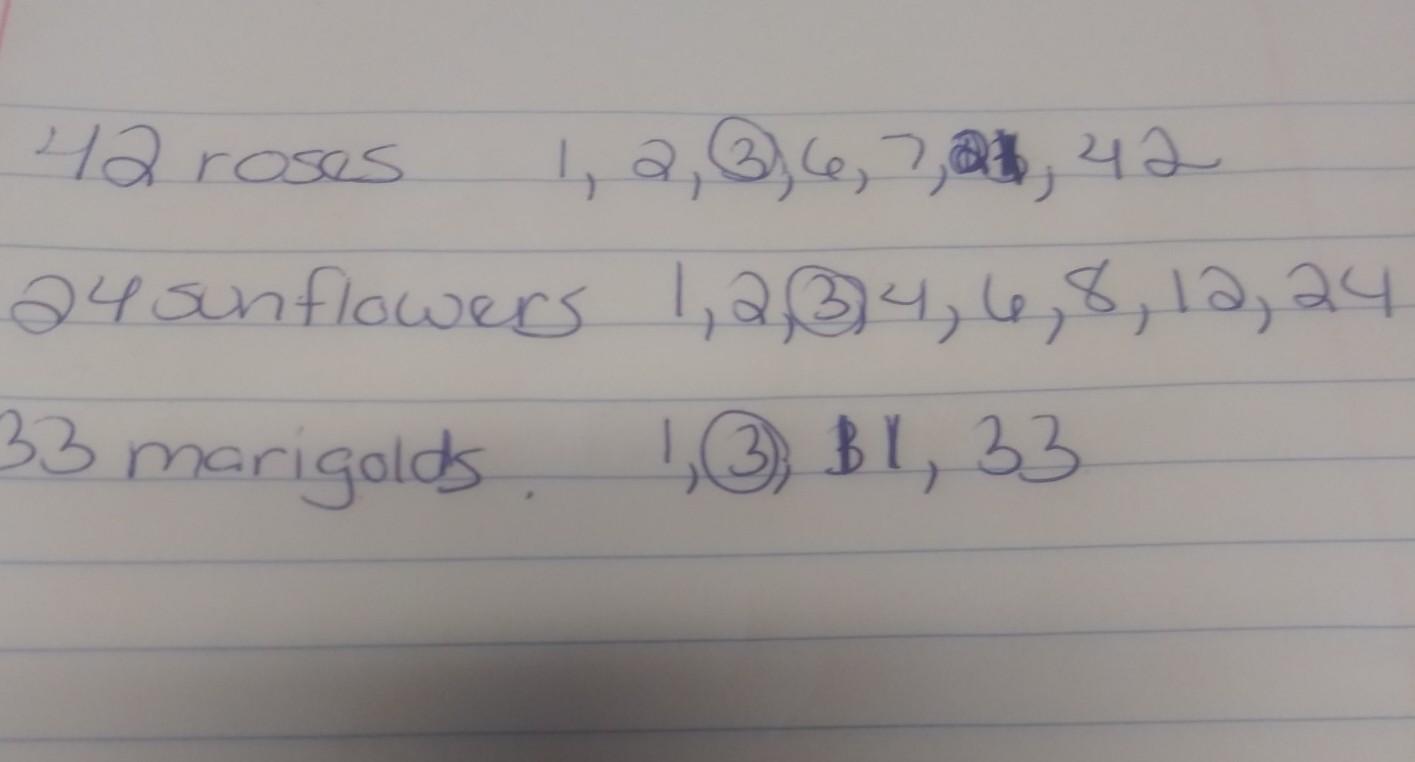 42 roses 1, 2, 3, 6, 7, 21, 42
24 sunflowers 1, 2, 3, 4, 6, 8, 12, 24
33 marigolds. 1, 3, 11, 33